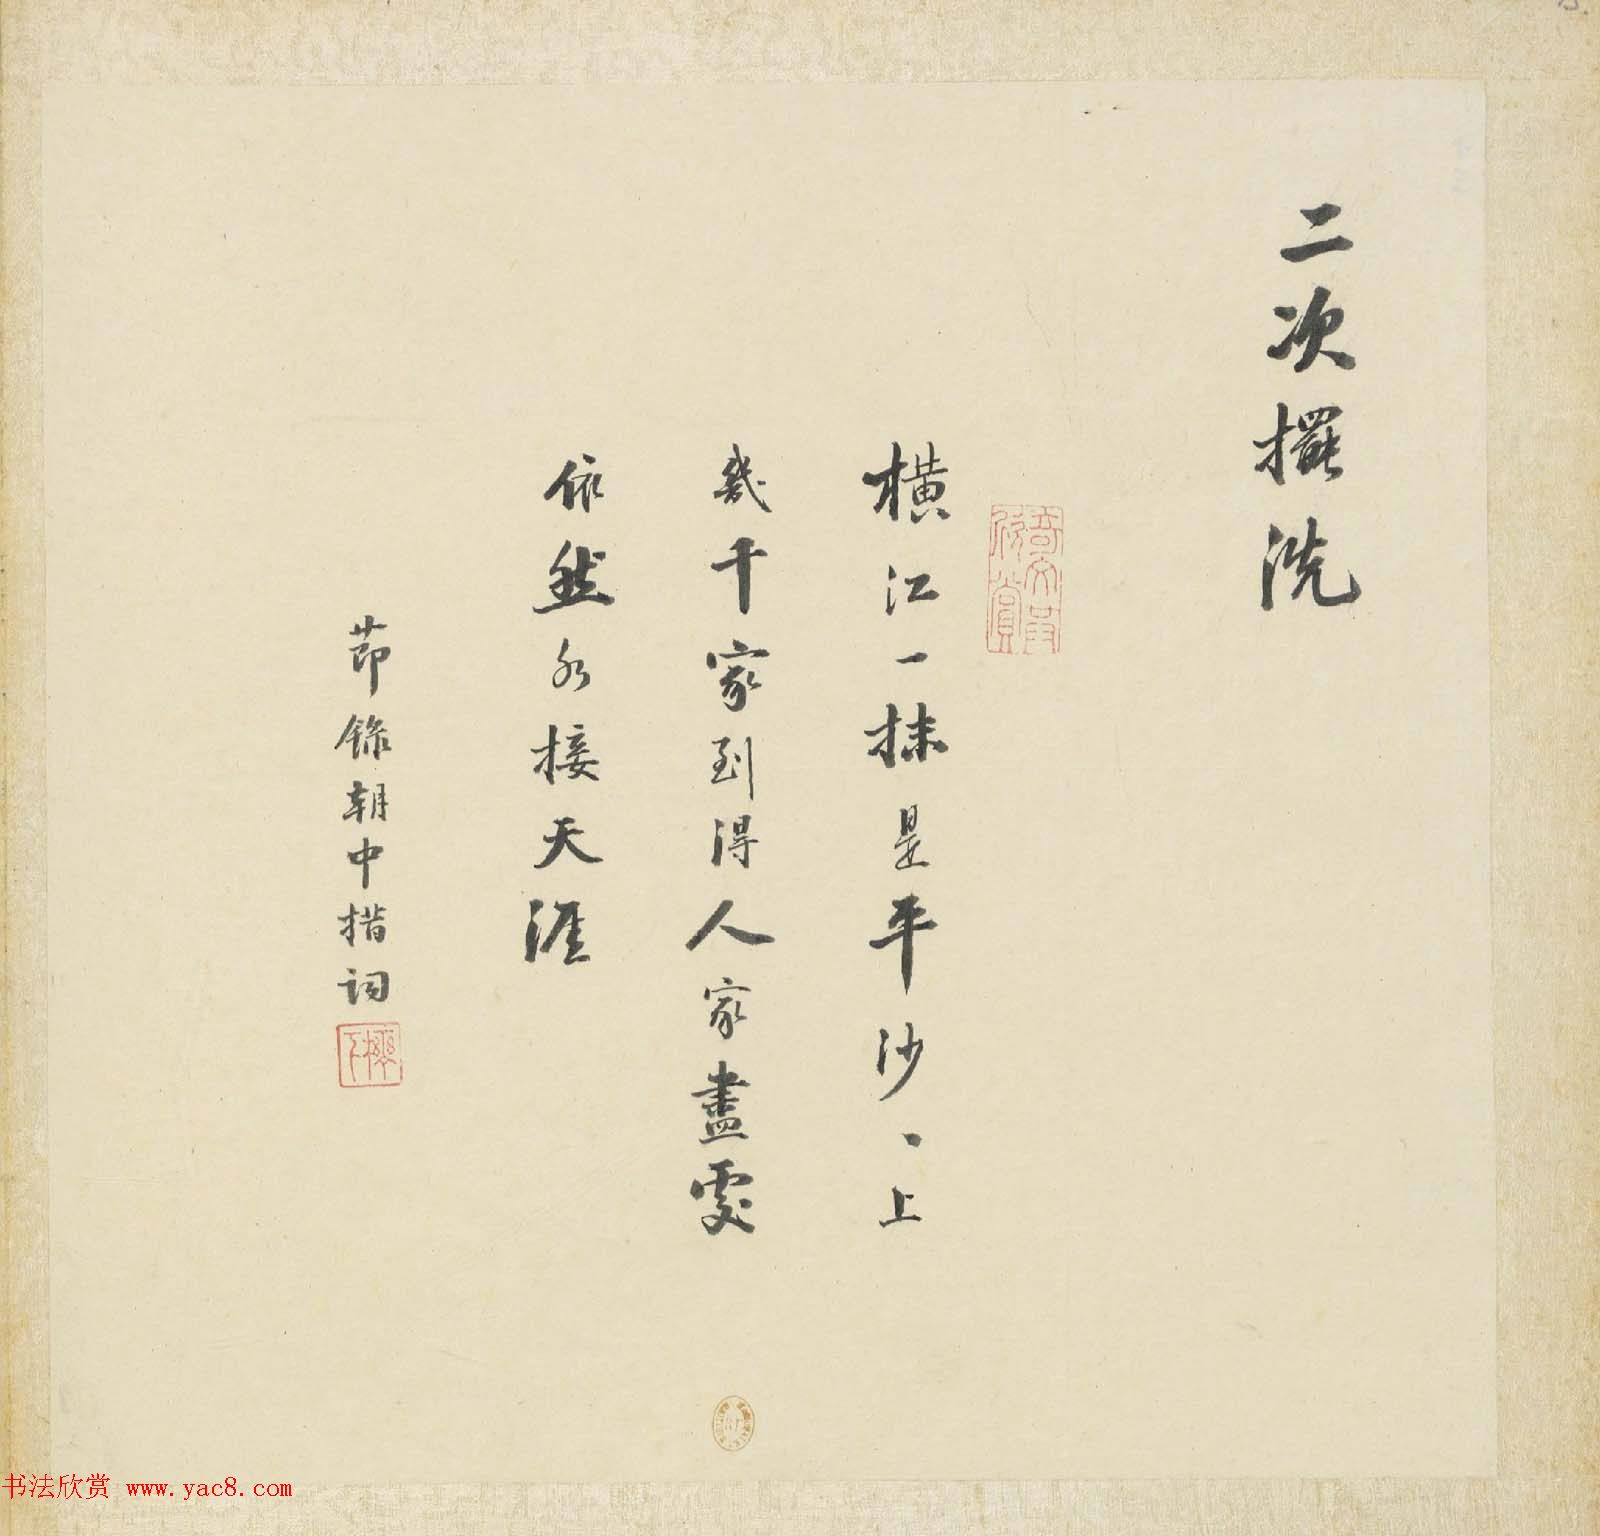 二次擺洗
橫江一抹是平沙、上
幾千家到得人家盡處
依然水接天涯
節錄朝中措詞
奇文共欣賞
书法欣赏 www.yac8.com